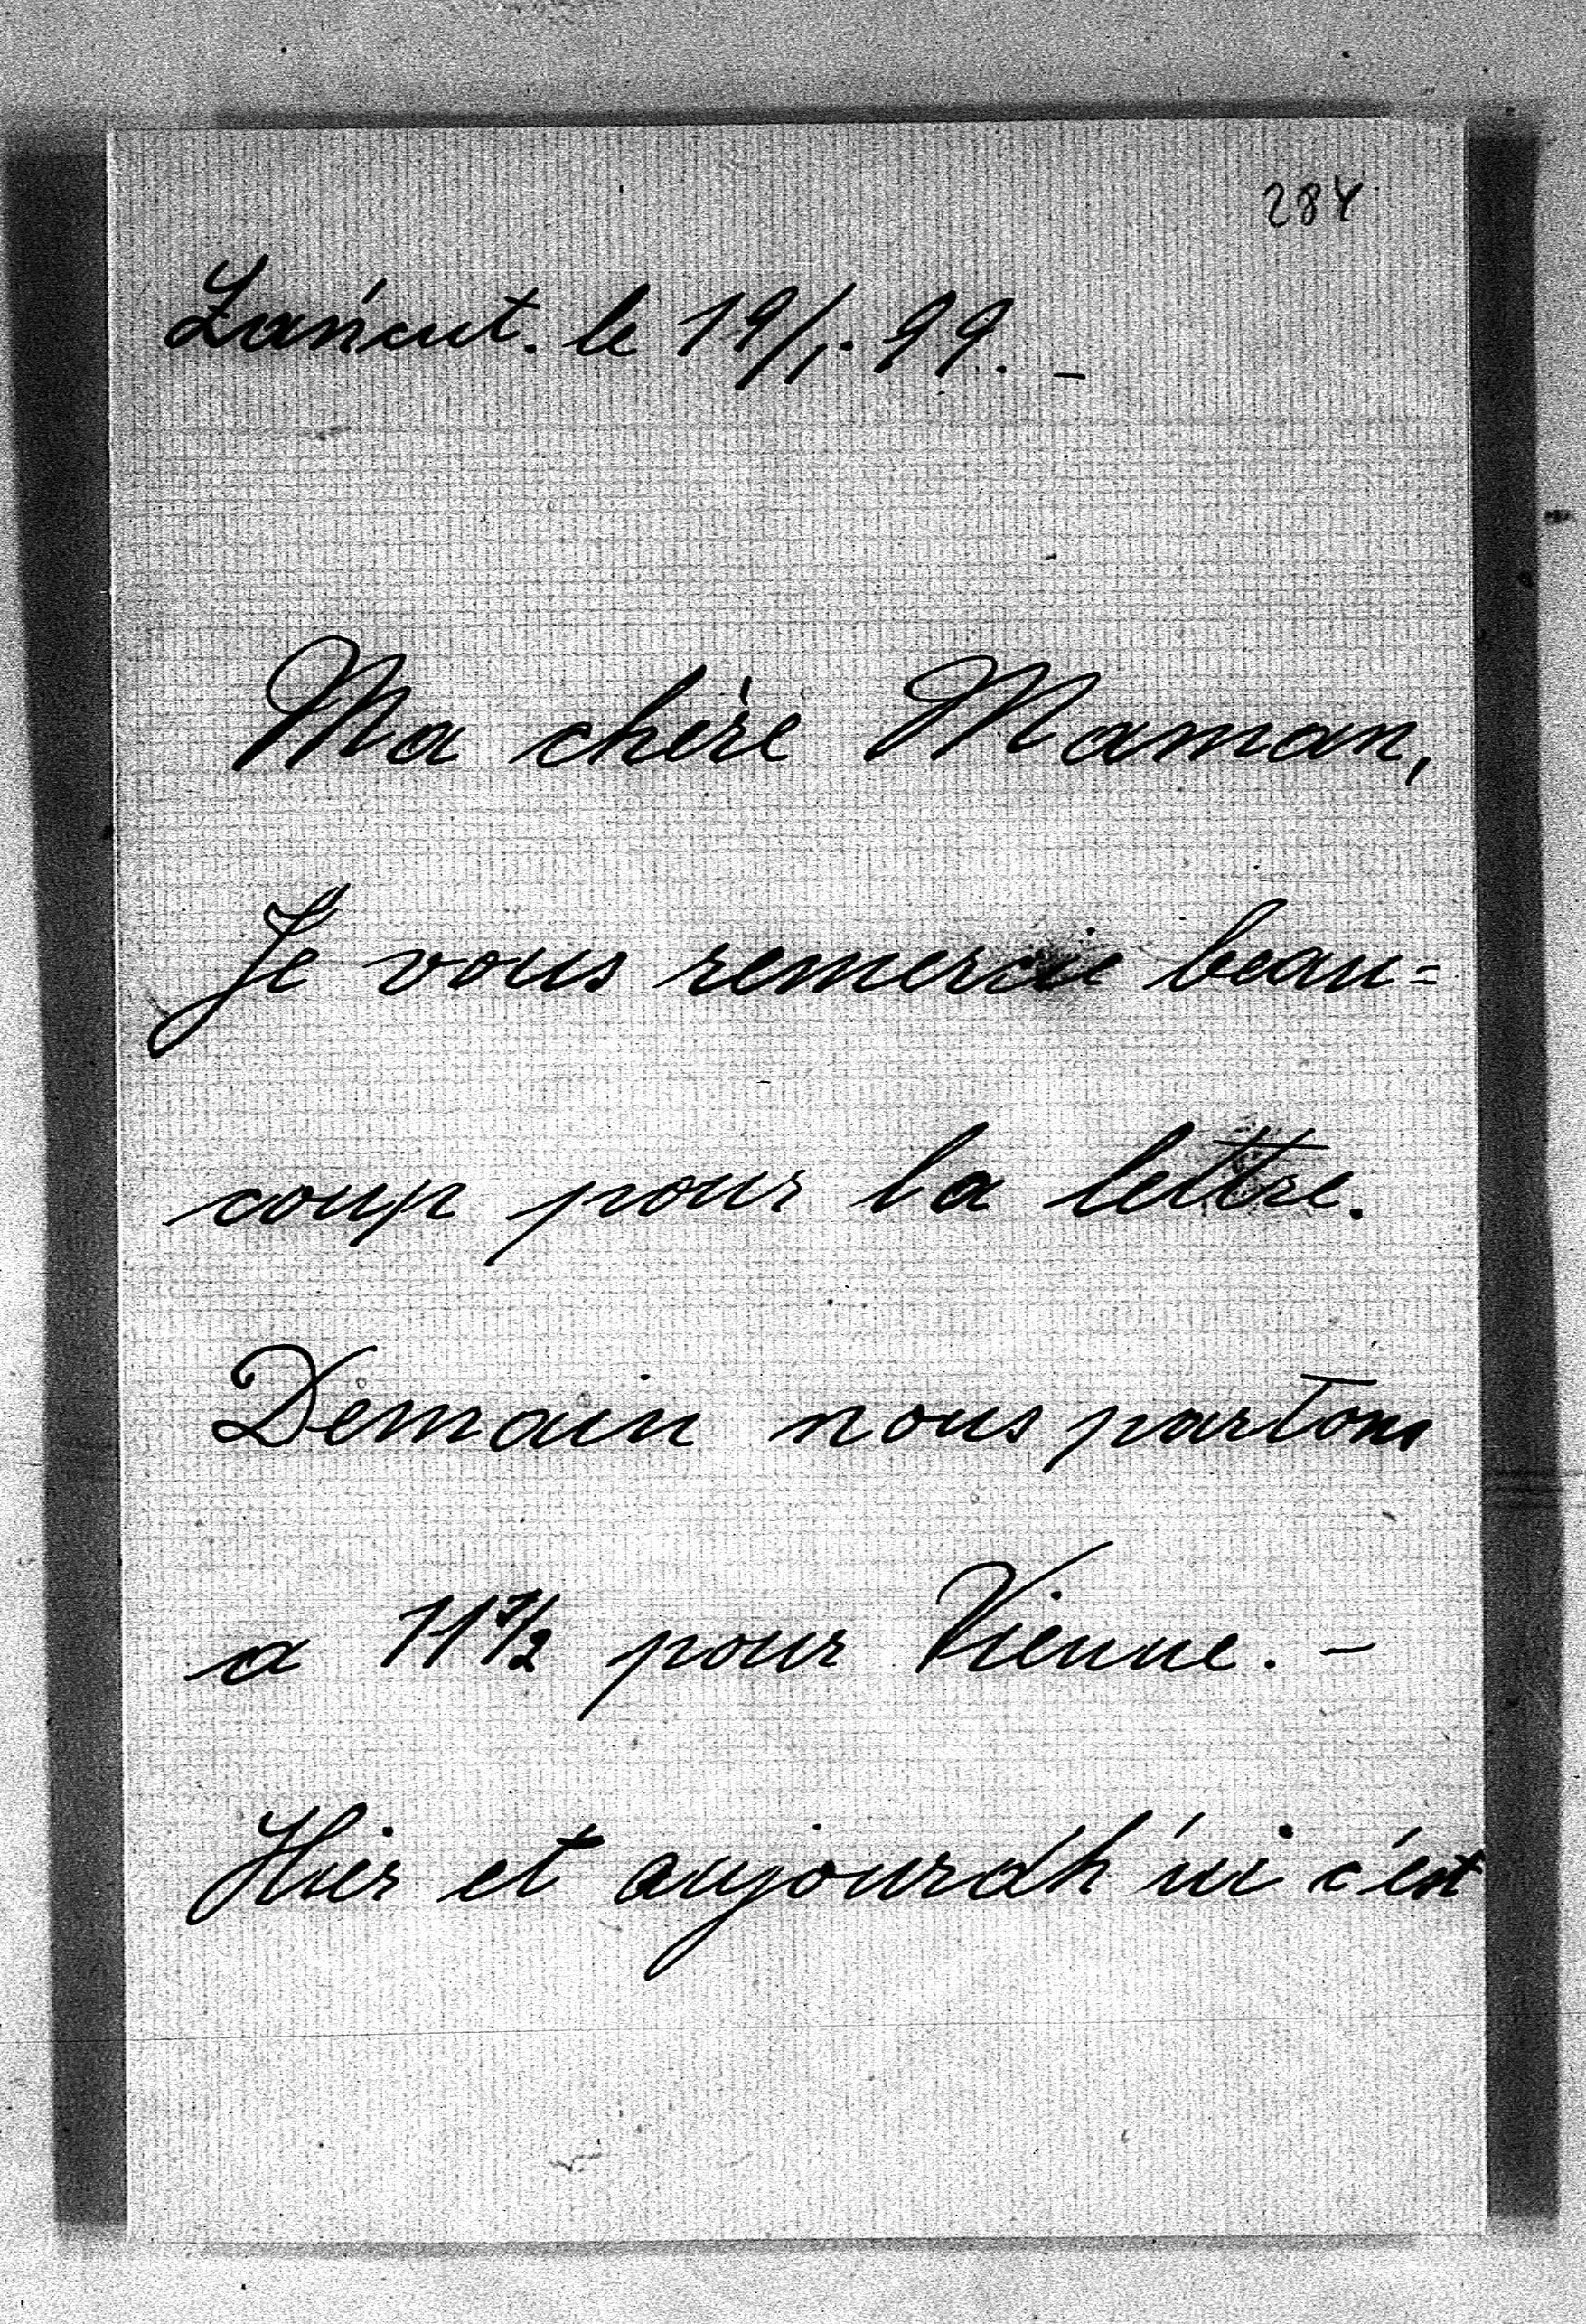 284
Łańcut. le 19/1. 99. –
Ma chère Maman,
Je vous remercie beau=
coup pour la lettre.
Demain nous partons
a 11 1/2 pour Vienne. –
Hier et aujourdh'ui c'est